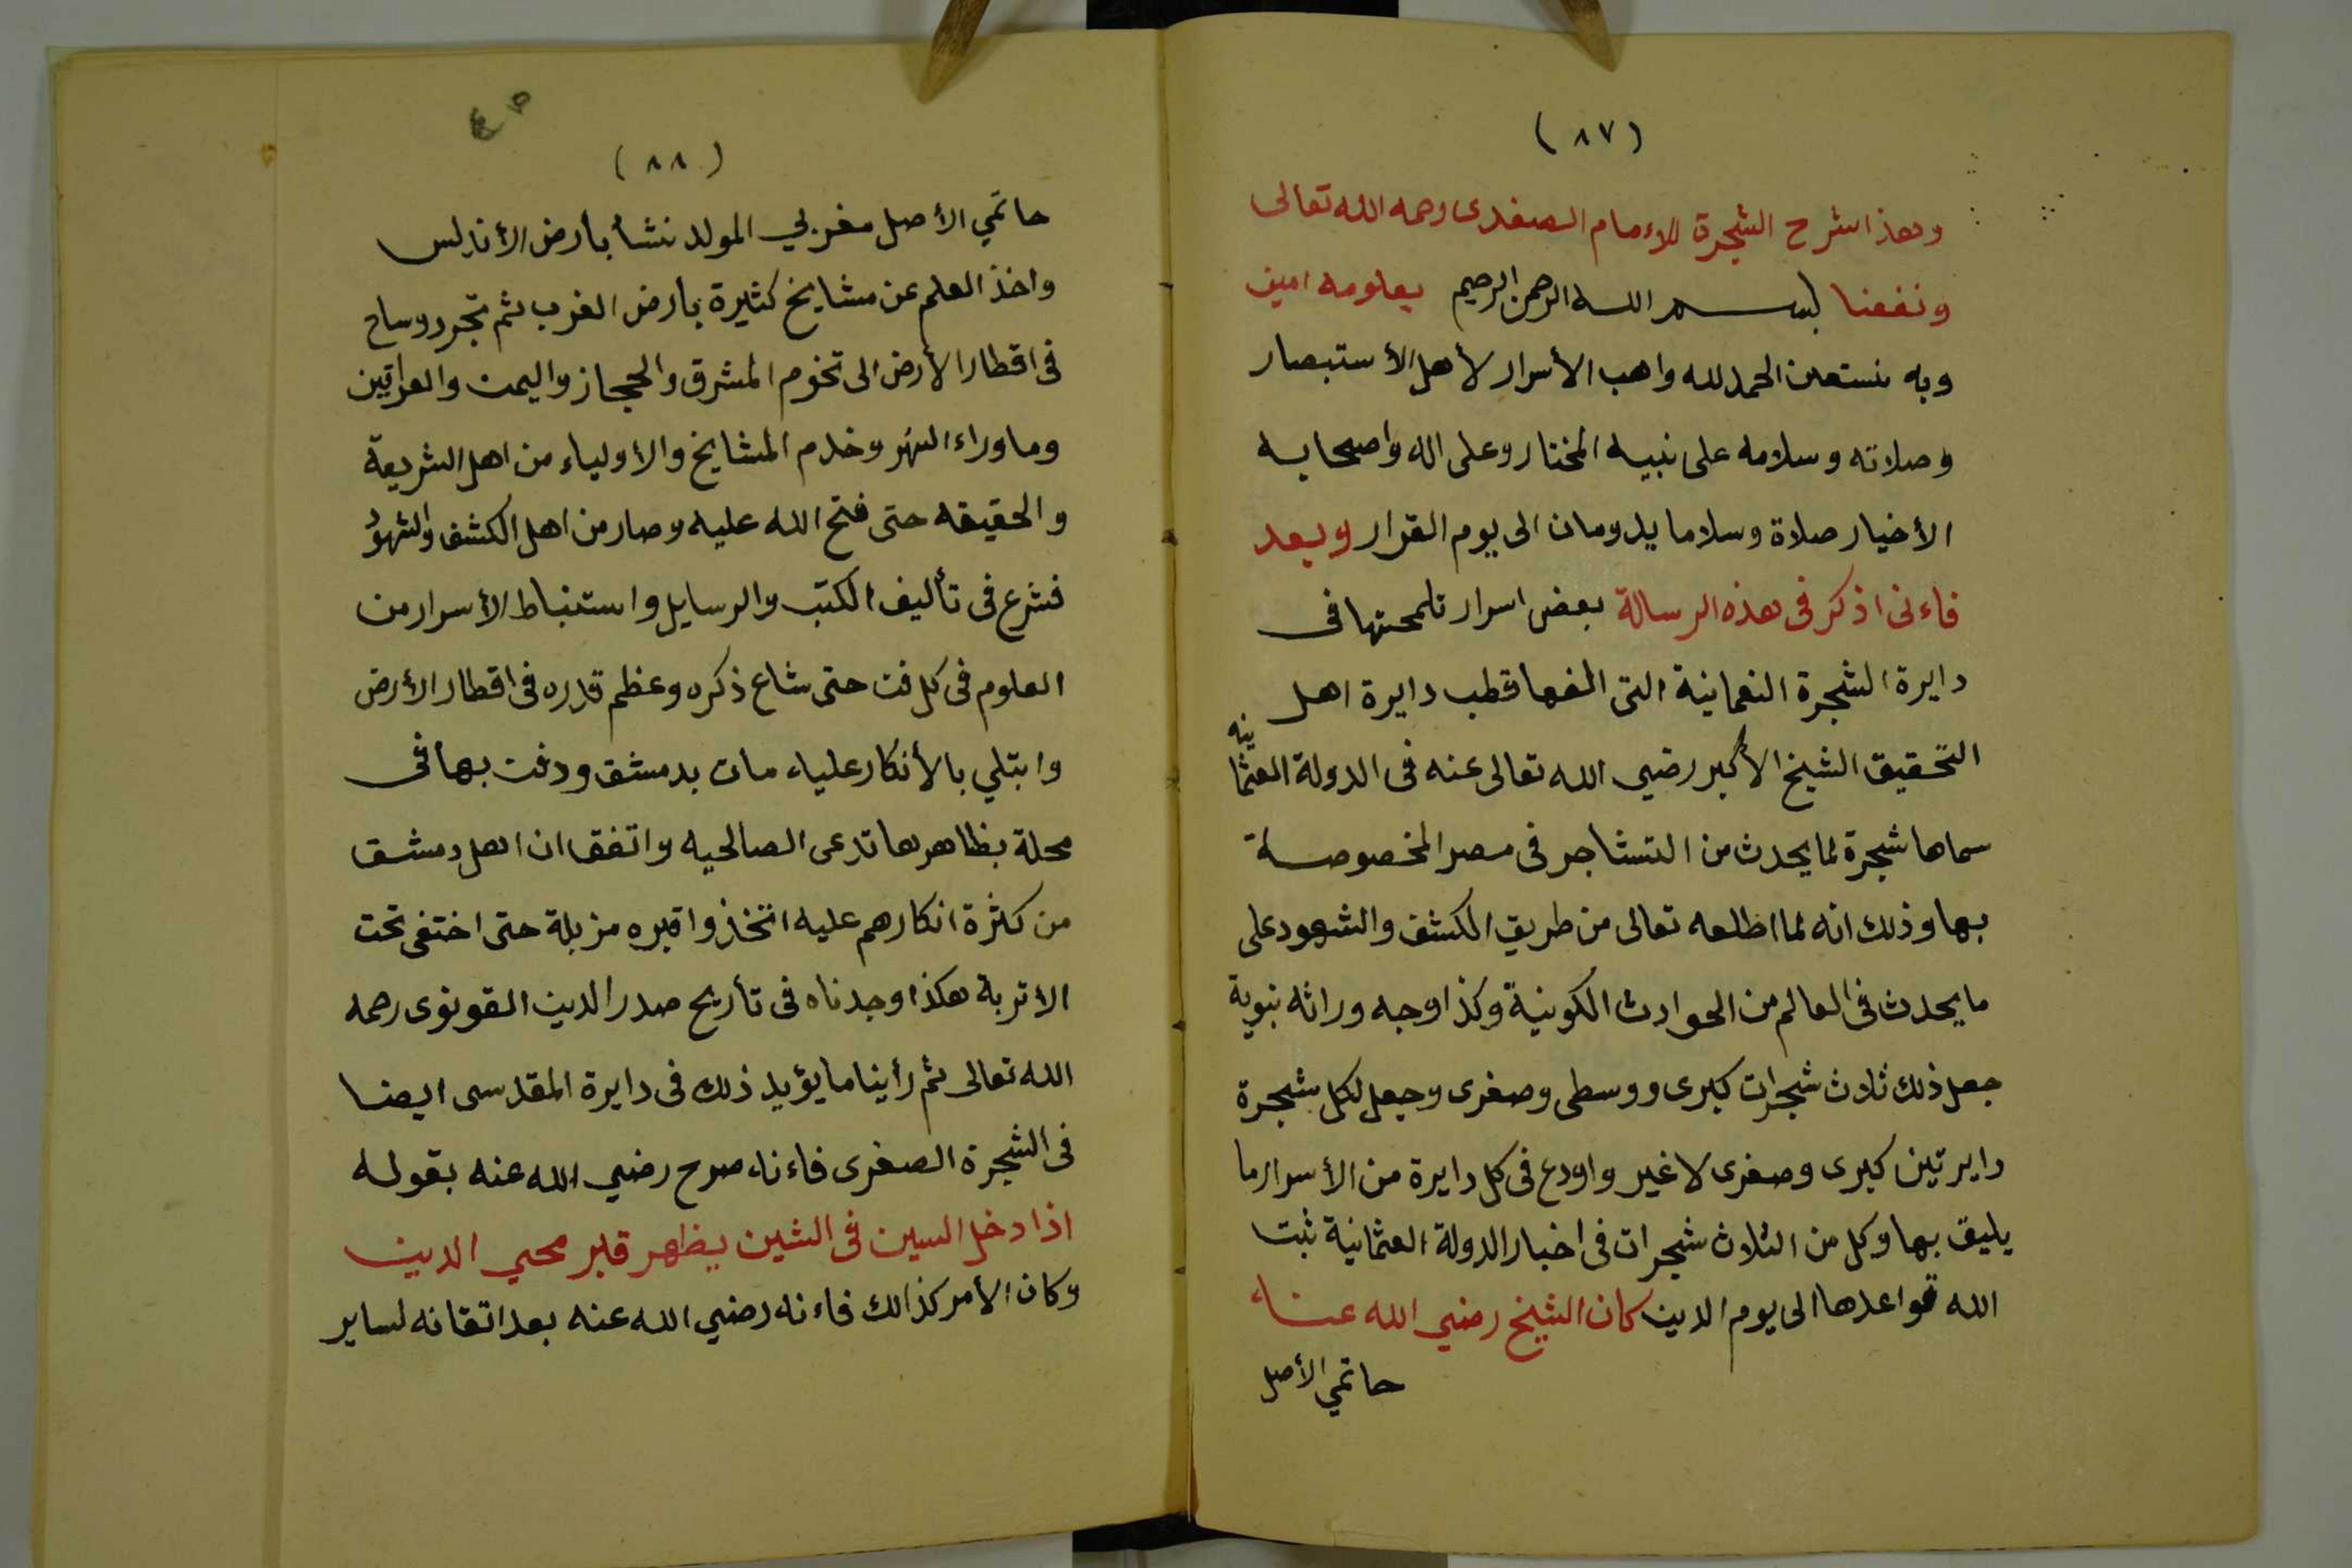 (٨٧)
وهذا شرح الشجرة للاءمام الصفدى رحمه الله تعالى
ونفعنا بسم الله الرحمن الرحيم بعلومه امين
وبه نستعين الحمد لله واهب الأسرار لأهل الأستبصار
وصلاته وسلامه على نبيه المختار وعلى اله واصحابه
الأخيار صلاة وسلاما يدومان الى يوم القرار وبعد
فاءنى اذكر فى هذه الرسالة بعض اسرار تلمحتها فى
دايرة الشجرة النعمانية التى الفها قطب دايرة اهل
التحقيق الشيخ الأكبر رضي الله تعالى عنه فى الدولة العثمانيه
سماها شجرة لما يحدث من التشاجر فى مصر المخصوصة
بها وذلك انه لما اطلعه تعالى من طريق الكشف والشهود على
ما يحدث فى العالم من الحوادث الكونية وكذا وجه وراثه نبوية
جعل ذلك ثلاث شجرات كبرى ووسطى وصغرى وجعل لكل شجرة
دايرتين كبرى وصغرى لا غير واودع فى كل دايرة من الأسرار ما
يليق بها وكل من الثلاث شجرات فى اخبار الدولة العثمانية ثبت
الله قواعدها الى يوم الدين كان الشيخ رضي الله عنه
حاتمي الأصل
(٨٨)
حاتمي الأصل مغربي المولد نشأ بأرض الأندلس
واخذ العلم عن مشايخ كثيرة بأرض الغرب ثم تجرد وساح
فى اقطار الأرض الى تخوم المشرق والحجاز واليمن والعراقين
وما وراء النهر وخدم المشايخ والأولياء من اهل الشريعة
والحقيقه حتى فتح الله عليه وصار من اهل الكشف والشهود
فشرع فى تأليف الكتب والرسايل واستنباط الأسرار من
العلوم فى كل فن حتى شاع ذكره وعظم قدره فى اقطار الأرض
وابتلي بالأنكار عليه مات بدمشق ودفن بها فى
محلة بظاهرها تدعى الصالحيه واتفق ان اهل دمشق
من كثرة انكارهم عليه اتخذوا قبره مزبلة حتى اختفى تحت
الأتربة هكذا وجدناه فى تأريح صدر الدين القونوى رحمه
الله تعالى ثم رأينا ما يؤيد ذلك فى دايرة المقدسى ايضا
فى الشجرة الصغرى فاءنه صرح رضي الله عنه بقوله
اذا دخل السين فى الشين يظهر قبر محي الدين
وكان الأمر كذالك فاءنه رضي الله عنه بعد اتقانه لساير